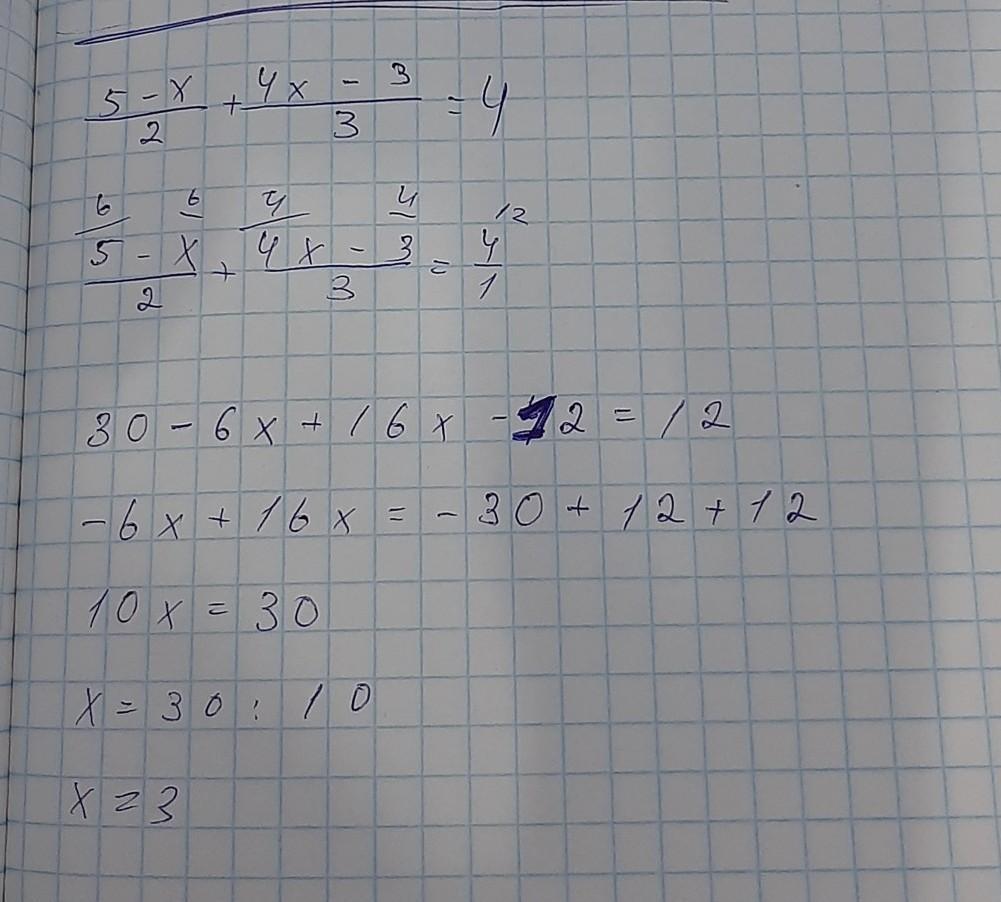 5 - x / 2 + 4x - 3 / 3 = 4
6 6 4 4 12
5 - x / 2 + 4x - 3 / 3 = 4 / 1
30 - 6x + 16x - 12 = 12
-6x + 16x = -30 + 12 + 12
10x = 30
x = 30 : 10
x = 3